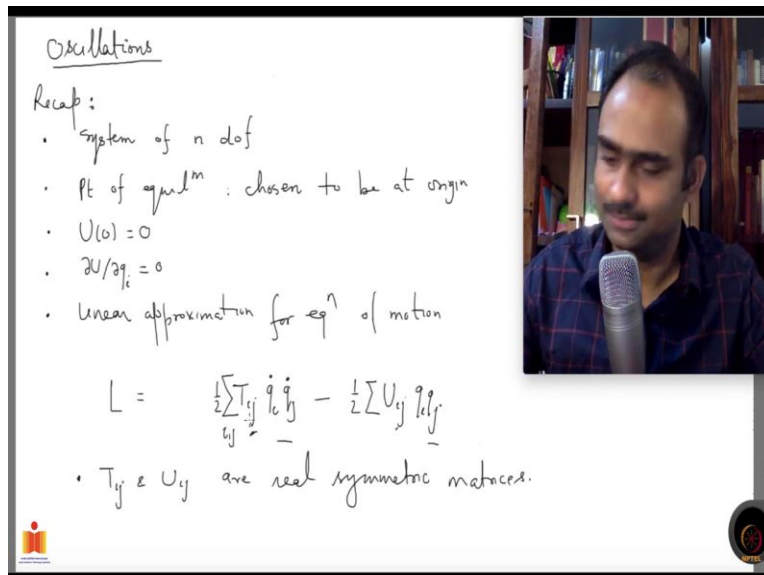 Oscillations
Recap :
• System of n dof
• Pt of equilᵐ : chosen to be at origin
• U(0) = 0
• ∂U/∂qᵢ = 0
• Linear approximation for eqⁿ of motion
L = ½ ∑ Tᵢⱼ q̇ᵢ q̇ⱼ − ½ ∑ Uᵢⱼ qᵢ qⱼ
i,j
• Tᵢⱼ & Uᵢⱼ are real symmetric matrices.
NPTEL